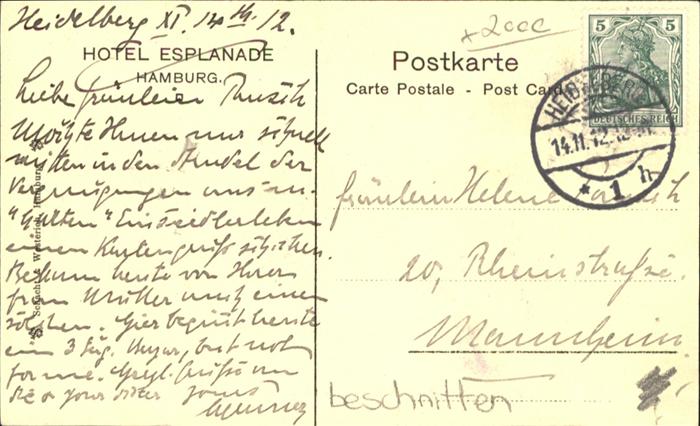 Heidelberg XI. 14th. 12.
HOTEL ESPLANADE
HAMBURG.
Liebe Fräulein
Möchte Ihnen nur schnell
mitten in den der
Vergnügungen uns-
"Guten" Einsiedlerleben
einen Kartengruß schicken.
Bekam heute von Ihrer
Frau Mutter auch einen
solchen. Hier beginnt heute
ein 3 täg. Bazar, but not
for me. Hrzl. Grüße an
Sie & your sister Yours
*2000
Postkarte
Carte Postale - Post Card
5 5
DEUTSCHES REICH
HEIDELBERG
14.11.12.
* 1 h
Fräulein Helene
20, Rheinstraße.
Mannheim
beschnitten